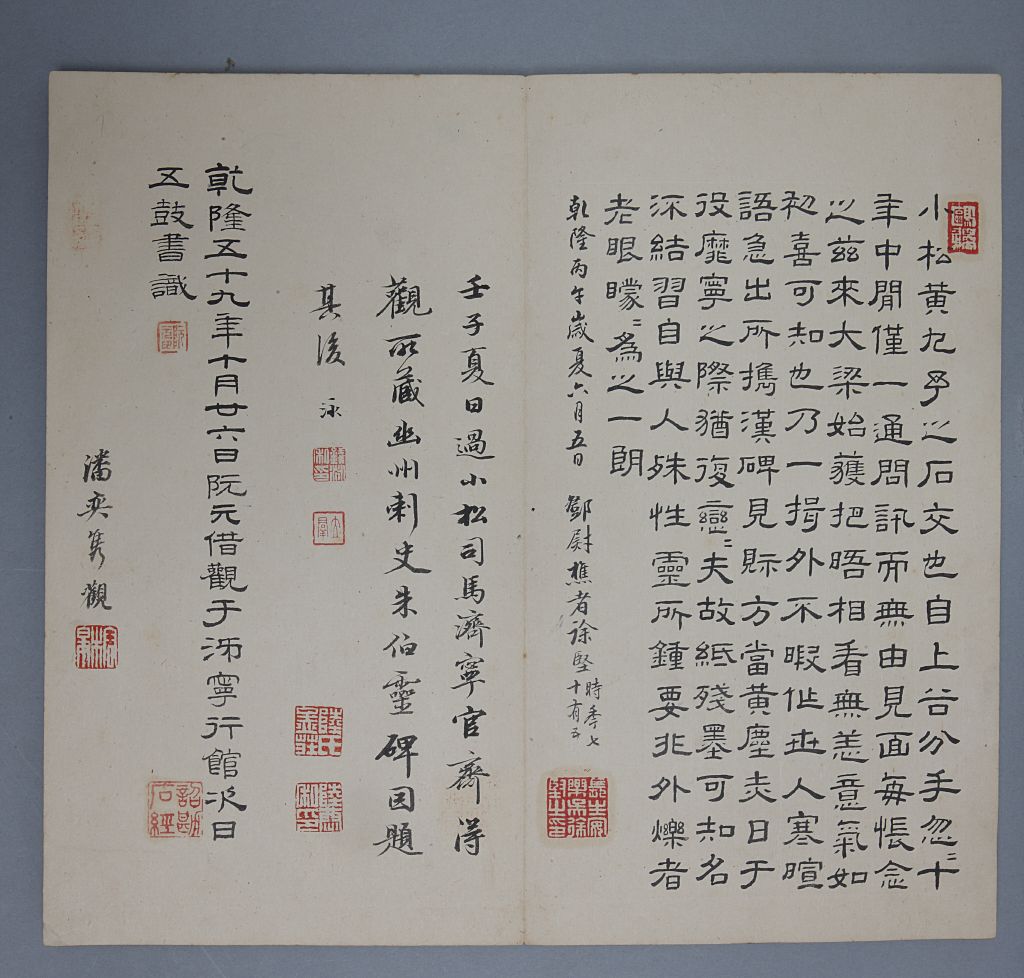 小松黃九予之石交也自上谷分手忽〻十
年中閒僅一通問訊而無由見面每悵念
之茲來大梁始獲把晤相看無恙意氣如
初喜可知也乃一揖外不暇作世人寒暄
語急出所攜漢碑見眎方當黃塵炎日于
役靡寧之際猶復戀〻夫故紙殘墨可知名
深結習自與人殊性靈所鍾要非外爍者
老眼矇〻爲之一朗
乾隆丙午歲夏六月五日 鄧尉樵者徐堅時年七十有五
壬子夏日過小松司馬濟寧官齋得
觀所藏幽州刺史朱伯靈碑因題
其後 泳
乾隆五十九年十月廿六日阮元借觀于泲寧行館次日
五鼓書識
詔勘石經
潘奕雋觀